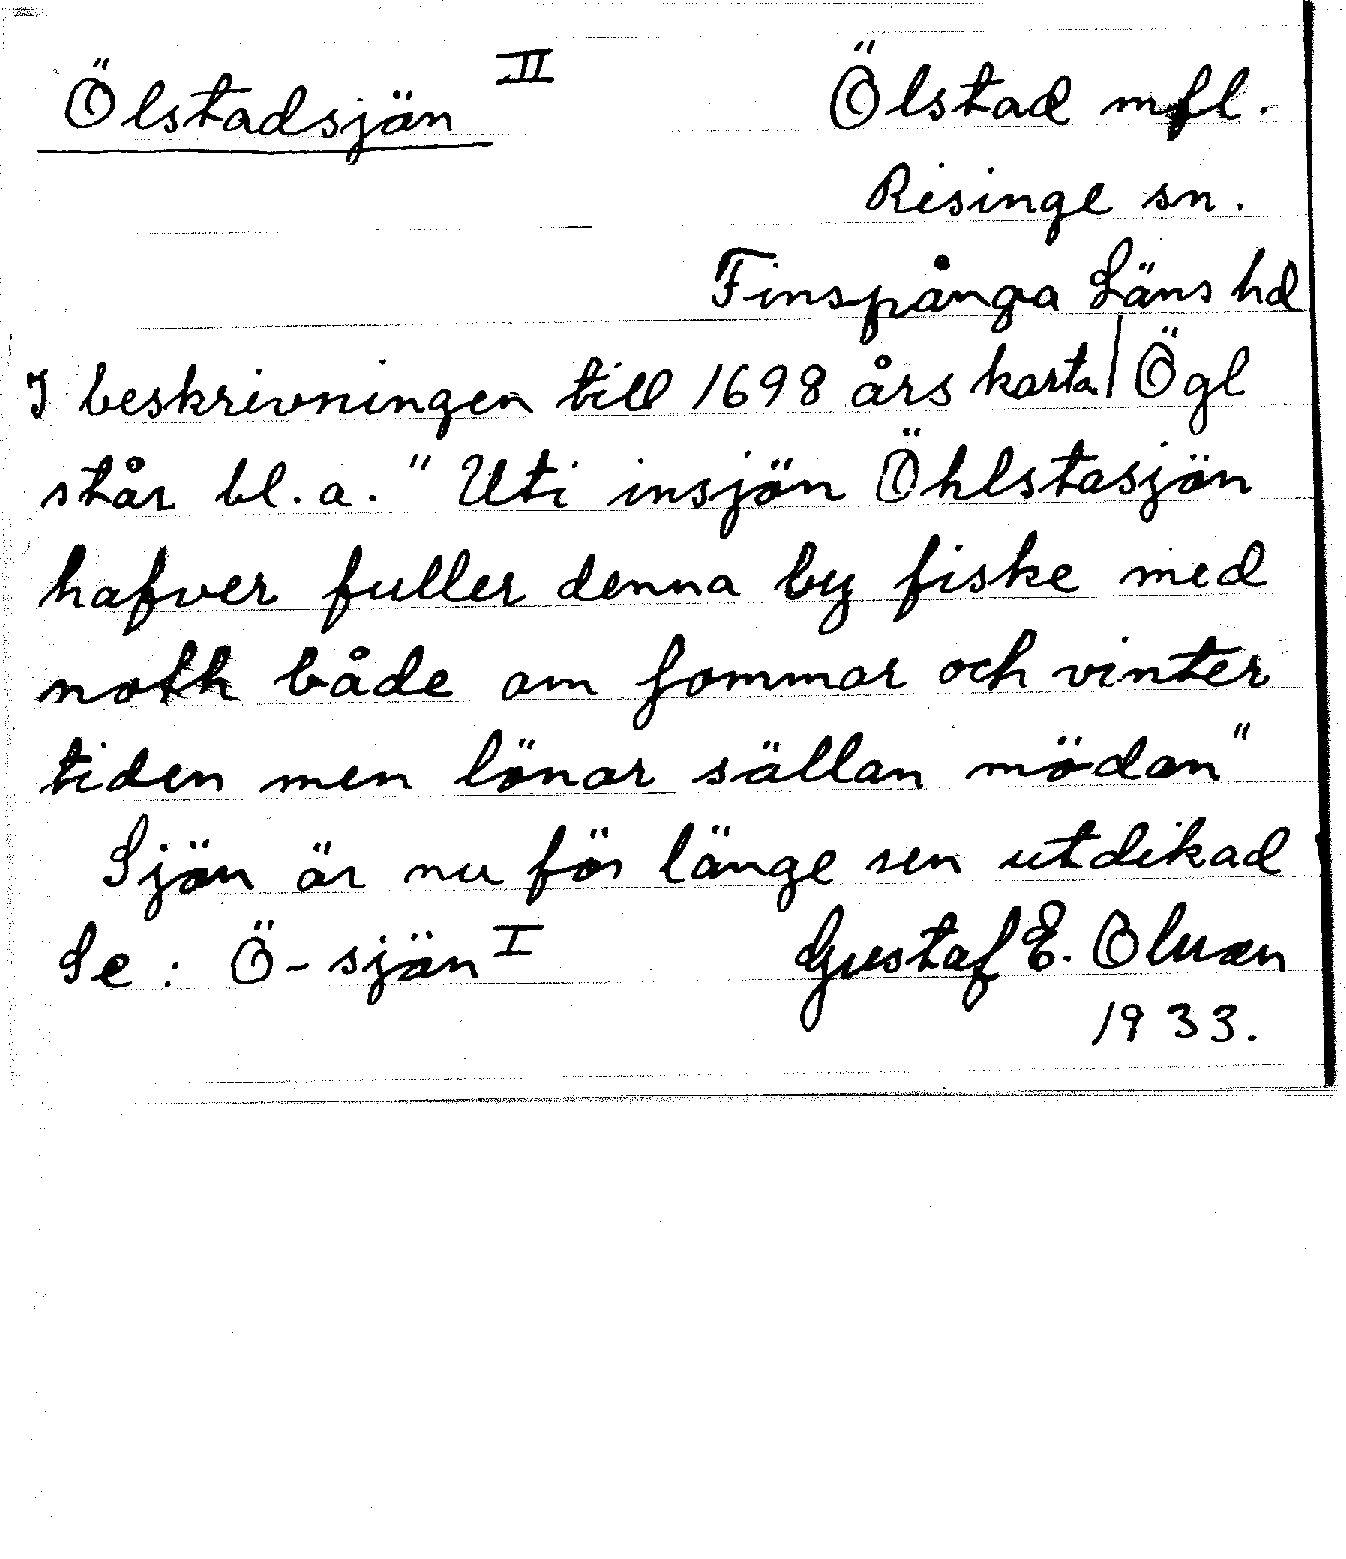 Ölstadsjön II
Ölstad mfl.
Risinge sn.
Finspånga Läns hd
Ögl
I beskrivningen till 1698 års karta
står bl.a. "Uti insjön Öhlstasjön
hafver fuller denna by fiske med
noth både om sommar och vinter
tiden men lönar sällan mödan"
Sjön är nu för länge sen utdikad
Se: Ö-sjön I
Gustaf E. Olwæn
1933.